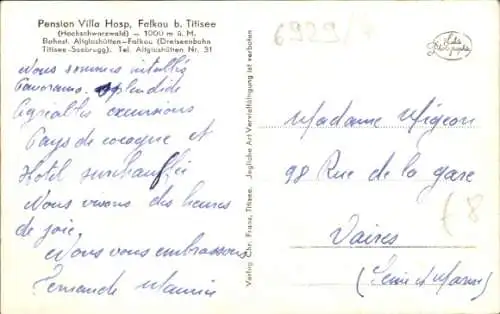 Pension Villa Hosp, Falkau b. Titisee
(Hochschwarzwald) – 1000 m ü. M.
Bahnst. Altglashütten-Falkau (Dreiseenbahn
Titisee-Seebrugg). Tel. Altglashütten Nr. 31
Nous sommes installés
Panorama splendide
Agréables excursions
Pays de cocagne et
Hotel surchauffé
Nous vivons des heures
de joie.
Nous vous embrassons
Fernande Maurice
Verlag Chr. Franz, Titisee. Jegliche Art Vervielfältigung ist verboten
6929/
Echte
Photographie
Madame Migeon
98 Rue de la gare
Vaires
(Seine et Marne)
£8